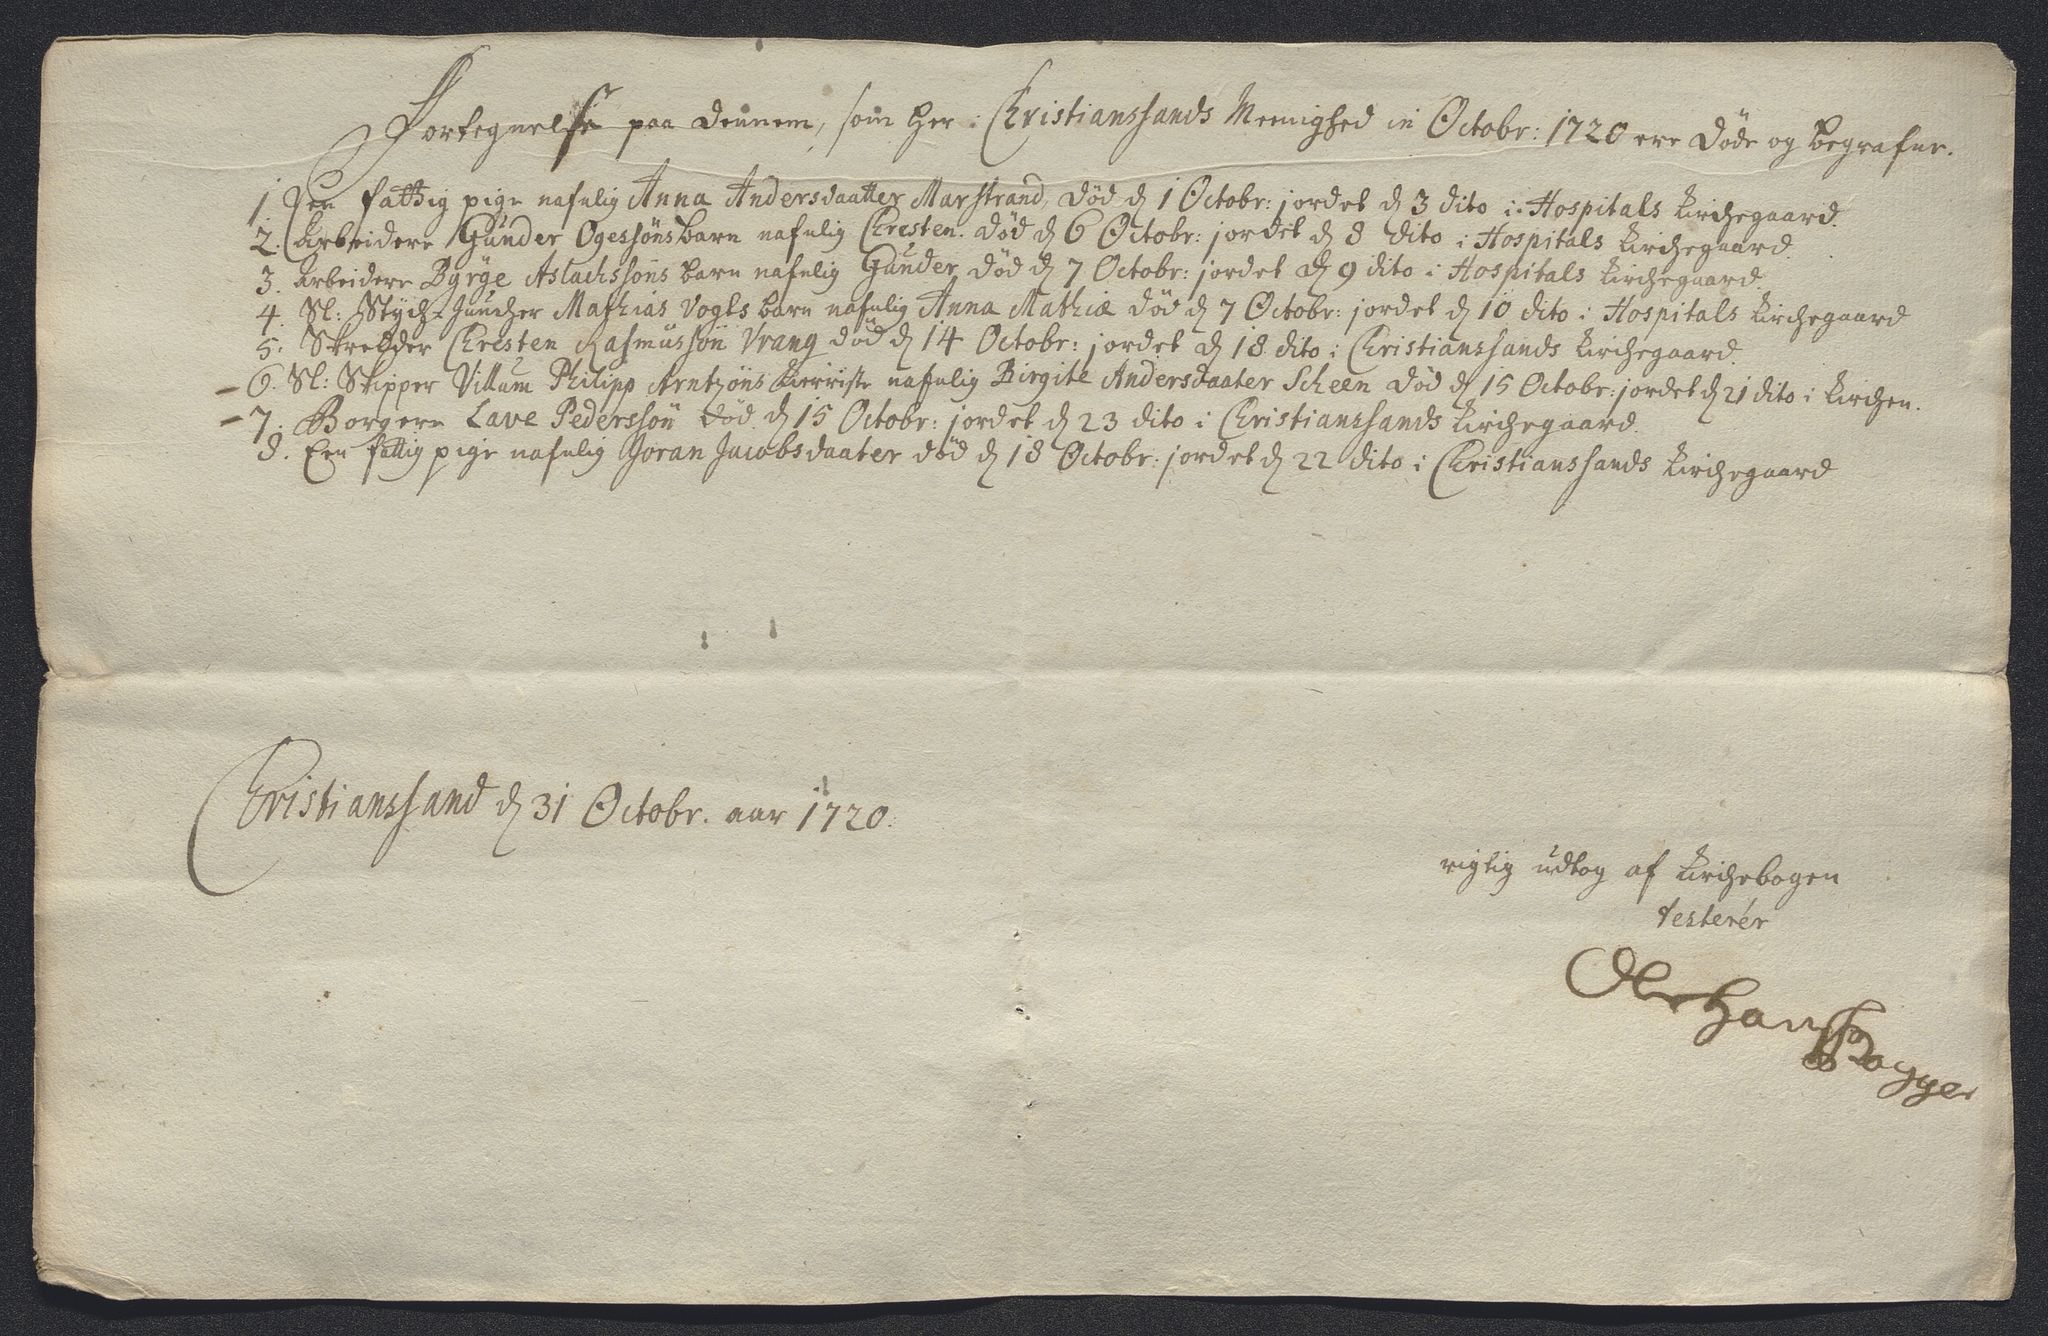 Fortegnelse paa dennem, som her i Christianssands Meenighed in Octobr: 1720 ere døde og begrafne.
1. Een fattig pige nafnlig Anna Andersdaatter Marstrand, død d 1 Octobr: jordet d 3 dito i Hospitals Kirchegaard.
2. Arbeidere Gunder Ogessøns barn nafnlig Christen. død d 6 Octobr: jordet d 8 dito i Hospitals Kirchegaard.
3. Arbeidere Byrge Aslachssøns barn nafnlig Gunder død d 7 Octobr: jordet d 9 dito i Hospitals Kirchegaard.
4. Sl: Stych-Juncher Mathias Vogts barn nafnlig Anna Mathiæ død d 7 Octobr: jordet d 10 dito i Hospitals Kirchegaard
5. Skredder Christen Rasmussøn Vrang død d 14 Octobr: jordet d 18 dito i Christianssands Kirchegaard.
6. Sl: Skipper Villum Philipp Arntzøns Kierriste nafnlig Birgite Andersdaater Scheen død d 15 Octobr: jordet d 21 dito i Kirchen.
7. Borgere Lave Pederssøn død d 15 Octobr: jordet d 23 dito i Christianssands Kirchegaard.
8. Een fattig pige nafnlig Joran Jacobsdaater død d 18 Octobr: jordet d 22 dito i Christianssands Kirchegaard
Christianssand d 31 Octobr. aar 1720.
rigtig udtog af Kirchebogen
testerer
Ole Hanss Bagger